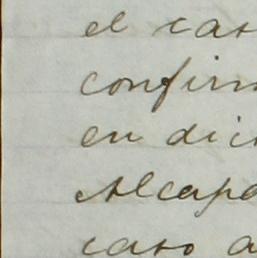 el cas
confirm
en dic
Alcapa
caso a